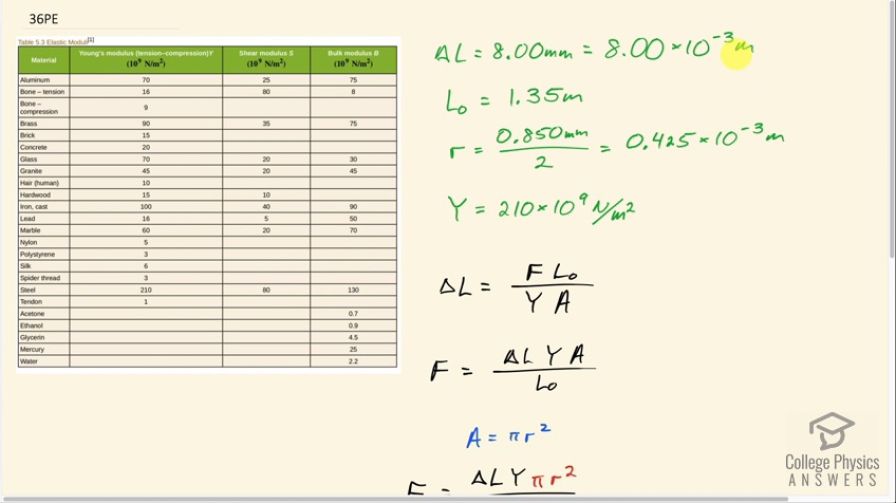 36PE
Table 5.3 Elastic Moduli[1]
Material Young's modulus (tension–compression)Y (10⁹ N/m²) Shear modulus S (10⁹ N/m²) Bulk modulus B (10⁹ N/m²)
Aluminum 70 25 75
Bone – tension 16 80 8
Bone – compression 9
Brass 90 35 75
Brick 15
Concrete 20
Glass 70 20 30
Granite 45 20 45
Hair (human) 10
Hardwood 15 10
Iron, cast 100 40 90
Lead 16 5 50
Marble 60 20 70
Nylon 5
Polystyrene 3
Silk 6
Spider thread 3
Steel 210 80 130
Tendon 1
Acetone 0.7
Ethanol 0.9
Glycerin 4.5
Mercury 25
Water 2.2
ΔL = 8.00mm = 8.00 × 10⁻³ m
L₀ = 1.35m
r = 0.850mm / 2 = 0.425 × 10⁻³ m
Y = 210 × 10⁹ N/m²
ΔL = F L₀ / Y A
F = ΔL Y A / L₀
A = πr²
F = ΔL Y πr²
College Physics
ANSWERS